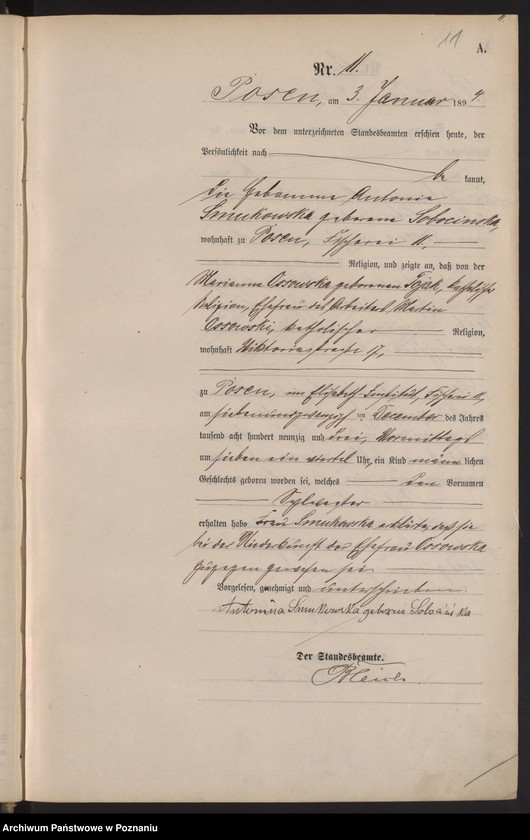 11
A.
Nr. 11.
Posen, am 3. Januar 1894.
Vor dem unterzeichneten Standesbeamten erschien heute, der
Persönlichkeit nach
be kannt,
die Hebamme Antonie
Smukowska geborene Sobocinska,
wohnhaft zu Posen, Fischerei 11,
Religion, und zeigte an, daß von der
Marianna Ossowska geborenen katholischer
Religion, Ehefrau des Arbeiters Martin
Ossowski, katholischer Religion,
wohnhaft Viktoriastraße 17,
zu Posen, im Elisabeth-Institut, Fischerei 11,
am siebenundzwanzig ten December des Jahres
tausend acht hundert neunzig und drei, Vormittags
um sieben ein viertel Uhr, ein Kind männlichen
Geschlechts geboren worden sei, welches den Vornamen
Sylvester
erhalten habe. Frau Smukowska erklärte, daß sie
bei der Niederkunft der Ehefrau Ossowska
zugegen gewesen sei.
Vorgelesen, genehmigt und unterschrieben
Antonina Smukowska geborna Sobocińska
Der Standesbeamte.
Archiwum Państwowe w Poznaniu